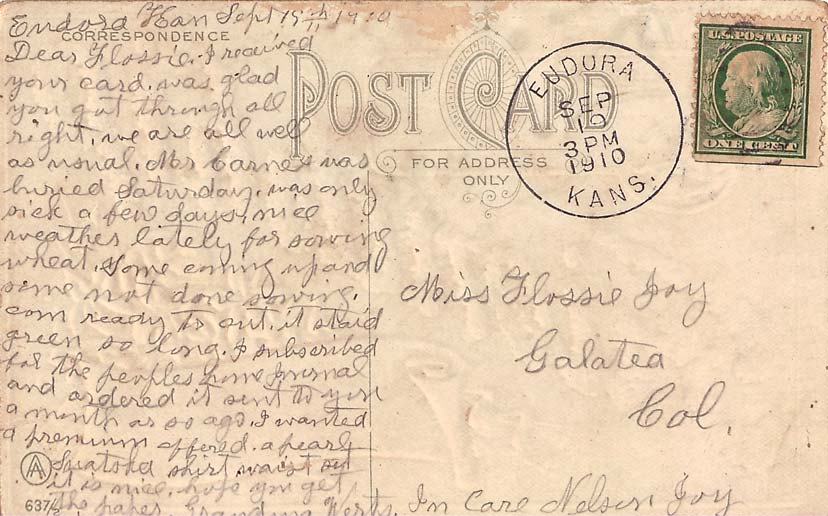 Eudora Kan Sept 19th 1910
CORRESPONDENCE
Dear Flossie. I received
your card. was glad
you got through all
right. we are all well
as usual. Mrs Carnes was
buried Saturday. was only
sick a few days. nice
weather lately for sowing
wheat. some coming up and
some not done sowing.
corn ready to cut. it staid
green so long. I subscribed
for the peoples home Journal
and ordered it sent to you
a month or so ago. I wanted
a premium offered. a pearl
shirt waist set
it is nice. hope you get
the paper. Grandma
POST CARD
FOR ADDRESS
ONLY
EUDORA
SEP
19
3 PM
1910
KANS.
U.S. POSTAGE
ONE CENT
Miss Flossie Joy
Galatea
Col.
In Care Nelson Joy
AA
637